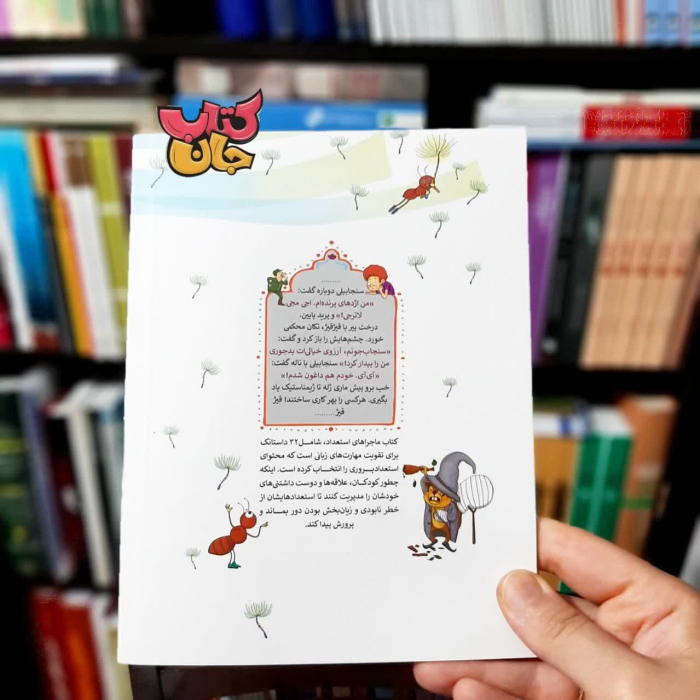 کتاب
جان
.........
سنجابیلی دوباره گفت:
«من اژدهای پرنده‌ام. اجی مجی
لاترجی!» و پرید پایین.
درخت پیر با قیژقیژ، تکان محکمی
خورد. چشم‌هایش را باز کرد و گفت:
«سنجاب‌جونم، آرزوی خیالی‌ات بدجوری
من را بیدار کرد!» سنجابیلی با ناله گفت:
«آی‌آی. خودم هم داغون شدم!»
خب برو پیش ماری ژله تا ژیمناستیک یاد
بگیری. هرکسی را بهر کاری ساختند! قیژ
قیژ.........
کتاب ماجراهای استعداد، شامل ۳۲ داستانک
برای تقویت مهارت‌های زبانی است که محتوای
استعدادپروری را انتخاب کرده است. اینکه
چطور کودکان، علاقه‌ها و دوست داشتنی‌های
خودشان را مدیریت کنند تا استعدادهایشان از
خطر نابودی و زیان‌بخش بودن دور بماند و
پرورش پیدا کند.